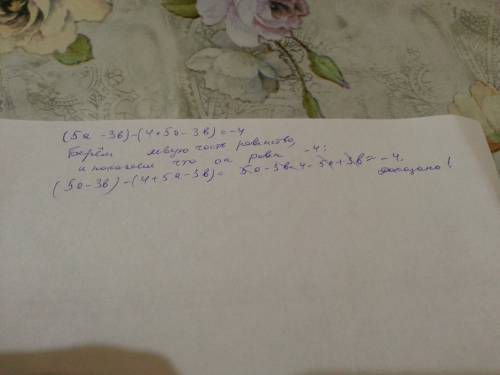 (5а - 3в) - (4 + 5а - 3в) = -4
Берём левую часть равенства,
и покажем что он рова -4:
(5а - 3в) - (4 + 5а - 3в) = 5а - 3в - 4 - 5а + 3в = -4.
доказано!